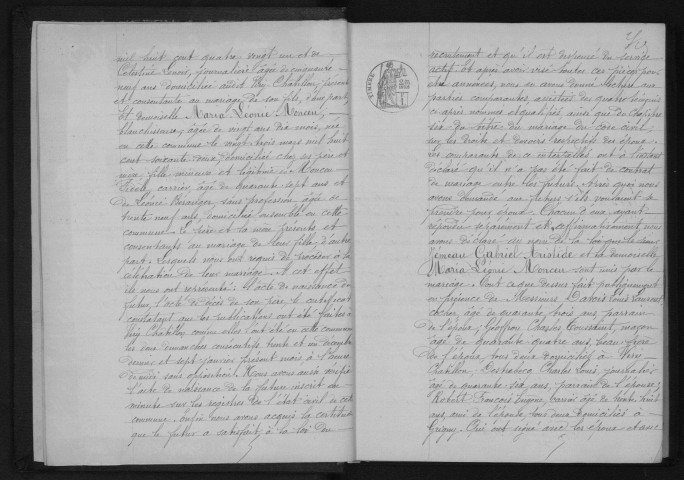 mil huit cent quatre vingt un et de
Celestine Lenoir, journalière âgée de cinquante
neuf ans domiciliée audit Viry Châtillon, présente
et consentante au mariage de son fils, d'une part,
et demoiselle Maria Léonie Morceu,
blanchisseuse, âgée de vingt ans dix mois, née
en cette commune le vingt trois mars mil huit
cent soixante deux, domiciliée chez ses père et
mère, fille mineure et légitime de Morceu
carrier, âgé de quarante sept ans et
de Léonie Beranger, sans profession âgée de
trente neuf ans, domiciliés ensemble en cette
commune. Le père et la mère présents et
consentants au mariage de leur fille, d'autre
part. Lesquels nous ont requis de procéder à la
célébration de leur mariage. A cet effet
ils nous ont représenté: 1° l'acte de naissance du
futur, l'acte de décès de son père, le certificat
constatant que les publications ont été faites à
Viry Châtillon comme elles l'ont été en cette commune
les deux dimanches consécutifs trente et un décembre
dernier et sept janvier présent mois, à l'heure
de midi sans opposition. Nous avons aussi vérifié
l'acte de naissance de la future inscrit en
minute sur les registres de l'état civil de cette
commune. Enfin nous avons acquis la certitude
que le futur a satisfait à la loi du
recrutement et qu'il est dispensé du service
actif. Et après avoir visé toutes ces pièces pour
être annexées, nous en avons donné lecture aux
parties comparantes, assistées des quatre témoins
ci après nommés et qualifiés, ainsi que du chapitre
six du titre du mariage du code civil,
sur les droits et devoirs respectifs des époux.
Les comparants de ce interpellés ont à l'instant
déclaré qu'il n'a pas été fait de contrat
de mariage entre les futurs. Après quoi nous
avons demandé aux futurs s'ils voulaient se
prendre pour époux. Chacun d'eux ayant
répondu séparément et affirmativement, nous
avons déclaré au nom de la loi que le sieur
Gabriel Aristide et la demoiselle
Maria Léonie Morceu sont unis par le
mariage. Tout ce que dessus fait publiquement
en présence de Messieurs Laurent
cocher, âgé de quarante trois ans, parrain
de l'époux, Geoffroy Charles Toussaint, maçon
âgé de quarante quatre ans, beau-frère
de l'époux, tous deux domiciliés à Viry
Châtillon, Charles Louis, journalier
âgé de quarante six ans, parrain de l'épouse,
Robert François Eugène, carrier âgé de trente huit
ans, ami de l'épouse, tous deux domiciliés à
Grigny. Qui ont signé avec les époux et avec
TIMBRE